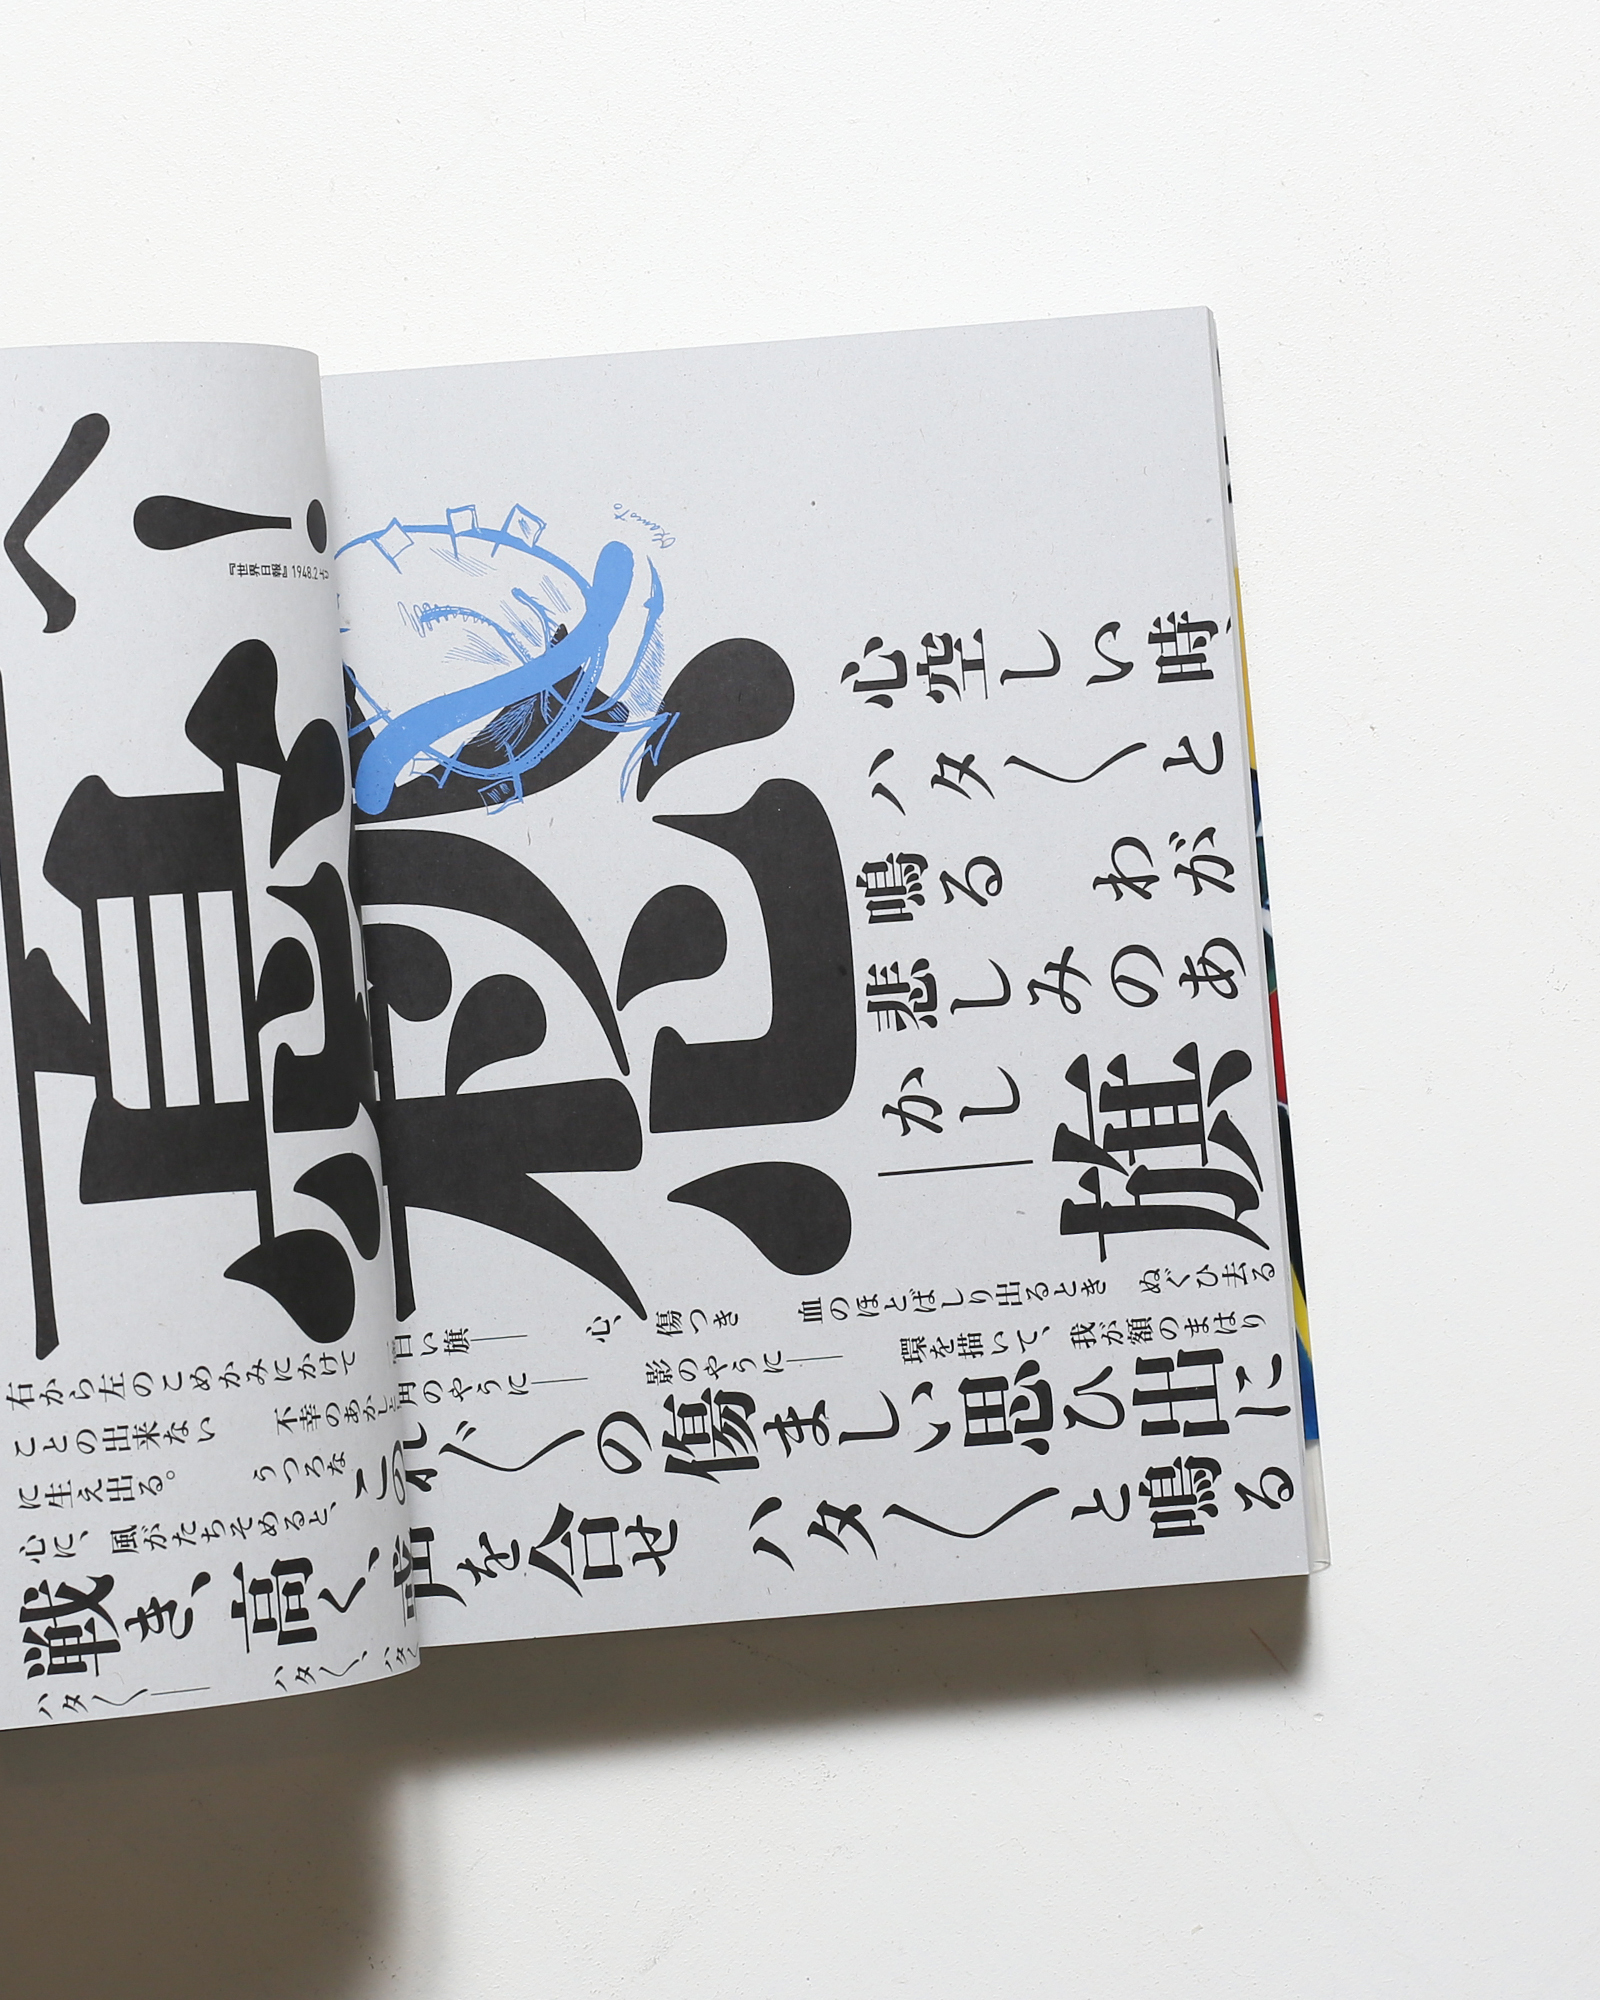 へ!
『世界日報』1948.2
心空しい時、
ハタ〱と
鳴る わが
悲しみのあ
かし
―― 旗
右から左のこめかみにかけて
白い旗――
心、傷つき
血のほとばしり出るとき ぬぐひ去る
ことの出来ない 不幸のあかし
円のやうに――
影のやうに――
環を描いて、我が額のまはり
に生え出る。 うつろな
ぐ〱の傷ましい思ひ出に
心に、風がたちそめると、
戦き、高く、声を合せ ハタ〱と鳴る
ハタ〱―― ハタ〱、ハタ
Okamoto